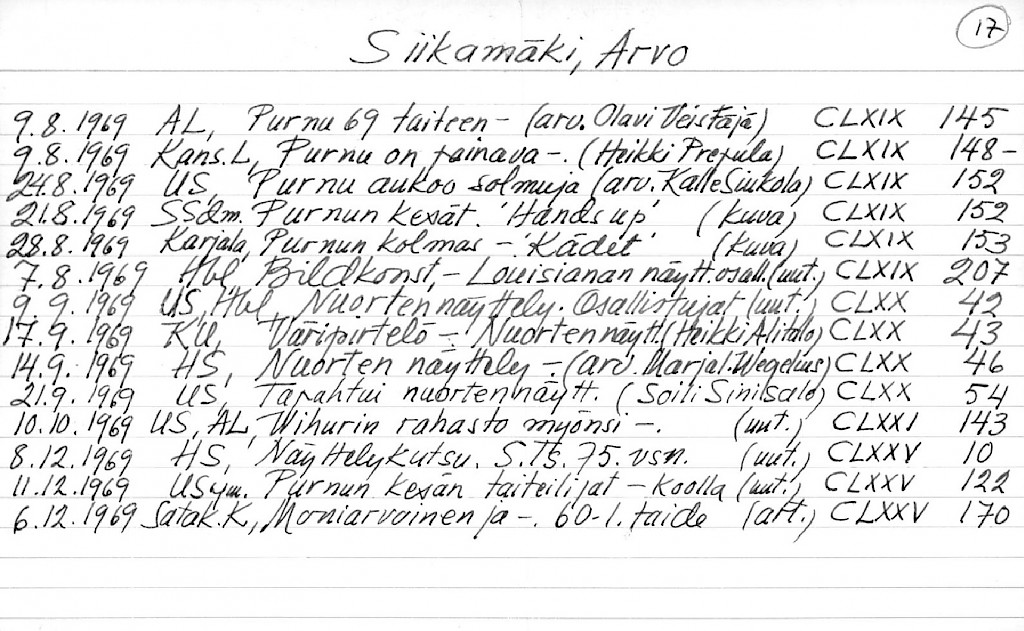 17
Siikamäki, Arvo
9.8.1969 AL, Purnu 69 taiteen - (arv. Olavi Veistäjä) CLXIX 145
9.8.1969 Kans.L, Purnu on painava -. (Heikki Prepula) CLXIX 148-
24.8.1969 US, Purnu aukoo solmuja (arv. Kalle Siukola) CLXIX 152
21.8.1969 SSdm. Purnun kesät. 'Hands up' (kuva) CLXIX 152
28.8.1969 Karjala, Purnun kolmas - 'Kädet' (kuva) CLXIX 153
7.8.1969 Hbl, Bildkonst, - Louisianan näytt. osall. (uut.) CLXIX 207
9.9.1969 US, Hbl, Nuorten näyttely. Osallistujat (uut.) CLXX 42
17.9.1969 KU, -. Nuorten näytt. (Heikki Alitalo) CLXX 43
14.9.1969 HS, Nuorten näyttely -. (arv. Marjal. Wegelius) CLXX 46
21.9.1969 US, Tapahtui nuorten näytt. (Soili Sinisalo) CLXX 54
10.10.1969 US, AL, Wihurin rahasto myönsi -. (uut.) CLXXI 143
8.12.1969 HS, Näyttelykutsu. S.Ts. 75. vsn. (uut.) CLXXV 10
11.12.1969 USym. Purnun kesän taiteilijat - koolla (uut.) CLXXV 122
6.12.1969 Satak.K, Moniarvoinen ja -. 60-l. taide (art.) CLXXV 170